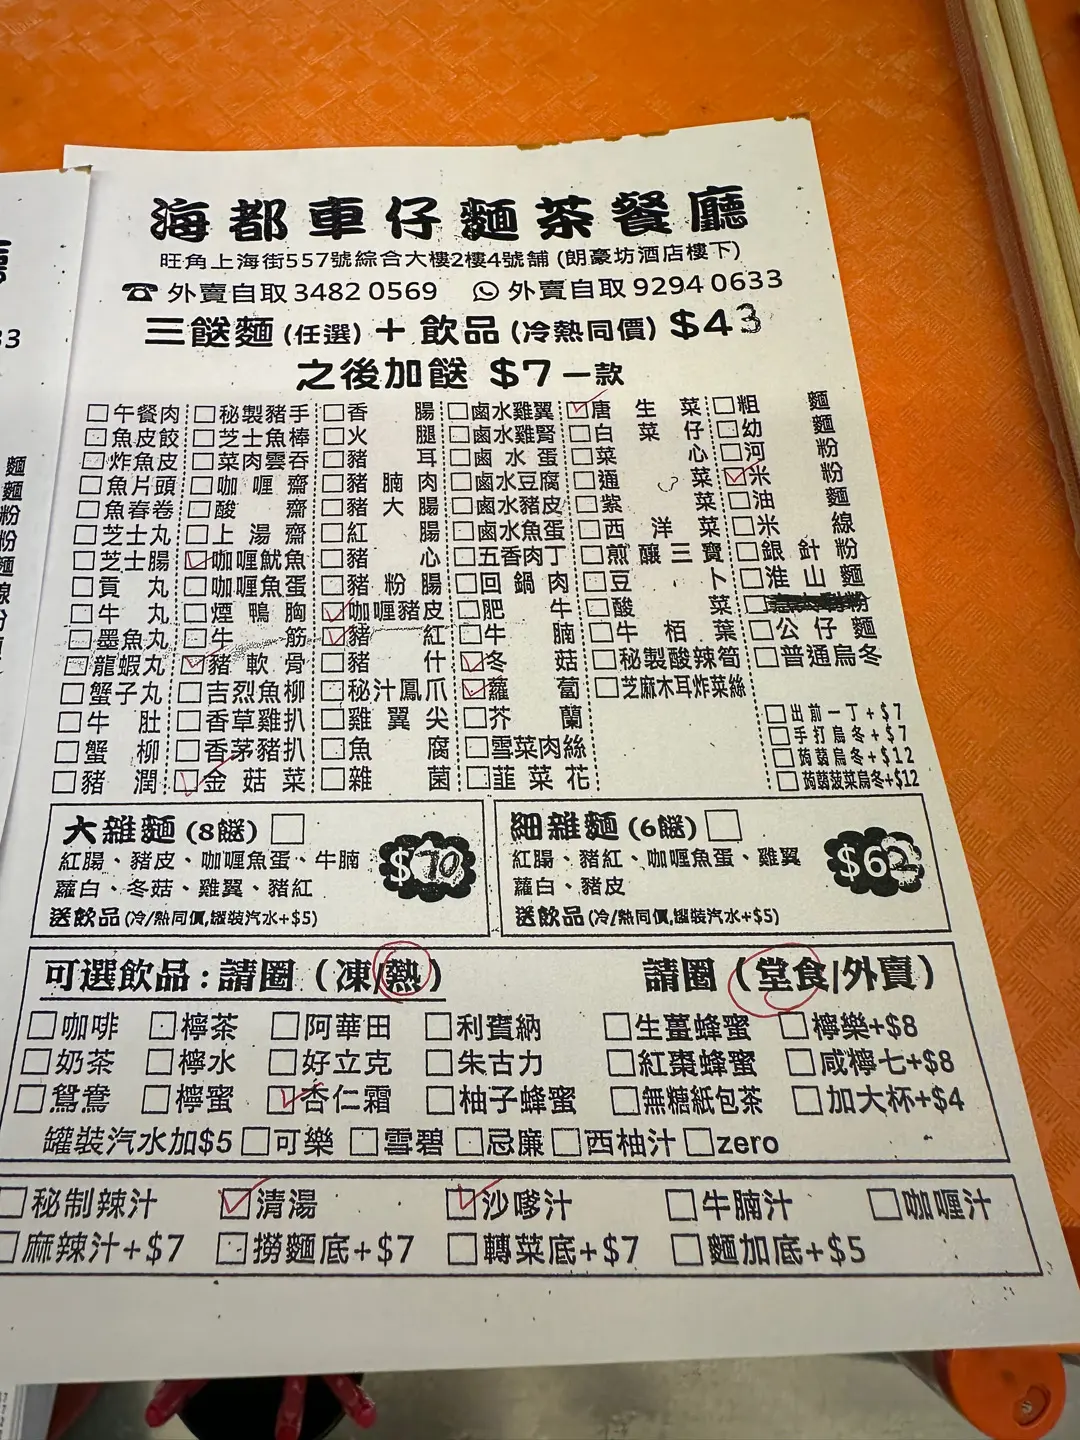 海都車仔麵茶餐廳
旺角上海街557號綜合大樓2樓4號舖 (朗豪坊酒店樓下)
外賣自取 3482 0569 外賣自取 9294 0633
三餸麵 (任選) + 飲品 (冷熱同價) $43
之後加餸 $7 一款
午餐肉 秘製豬手 香腸 鹵水雞翼 唐生菜 粗麵
魚皮餃 芝士魚棒 火腿 鹵水雞腎 白菜仔 幼麵
炸魚皮 菜肉雲吞 豬耳 鹵水蛋 菜心 河粉
魚片頭 咖喱齋 豬腩肉 鹵水豆腐 通菜 米粉
魚春卷 酸齋 豬大腸 鹵水豬皮 紫菜 油麵
芝士丸 上湯齋 紅腸 鹵水魚蛋 西洋菜 米線
芝士腸 咖喱魷魚 豬心 五香肉丁 煎釀三寶 銀針粉
貢丸 咖喱魚蛋 豬粉腸 回鍋肉 豆卜 淮山麵
牛丸 煙鴨胸 咖喱豬皮 肥牛 酸菜
墨魚丸 牛筋 豬紅 牛腩 牛栢葉 公仔麵
龍蝦丸 豬軟骨 豬什 冬菇 秘製酸辣筍 普通烏冬
蟹子丸 吉烈魚柳 秘汁鳳爪 蘿蔔 芝麻木耳炸菜絲
牛肚 香草雞扒 雞翼尖 芥蘭 出前一丁+$7
蟹柳 香茅豬扒 魚腐 雪菜肉絲 手打烏冬+$7
豬潤 金菇菜 雜菌 韮菜花 蒟蒻烏冬+$12
蒟蒻菠菜烏冬+$12
大雜麵 (8餸) $70
紅腸、豬皮、咖喱魚蛋、牛腩
蘿白、冬菇、雞翼、豬紅
送飲品 (冷/熱同價,罐裝汽水+$5)
細雜麵 (6餸) $62
紅腸、豬紅、咖喱魚蛋、雞翼
蘿白、豬皮
送飲品 (冷/熱同價,罐裝汽水+$5)
可選飲品 : 請圈 (凍/熱) 請圈 (堂食/外賣)
咖啡 檸茶 阿華田 利賓納 生薑蜂蜜 檸樂+$8
奶茶 檸水 好立克 朱古力 紅棗蜂蜜 咸檸七+$8
鴛鴦 檸蜜 杏仁霜 柚子蜂蜜 無糖紙包茶 加大杯+$4
罐裝汽水加$5 可樂 雪碧 忌廉 西柚汁 zero
秘制辣汁 清湯 沙嗲汁 牛腩汁 咖喱汁
麻辣汁+$7 撈麵底+$7 轉菜底+$7 麵加底+$5